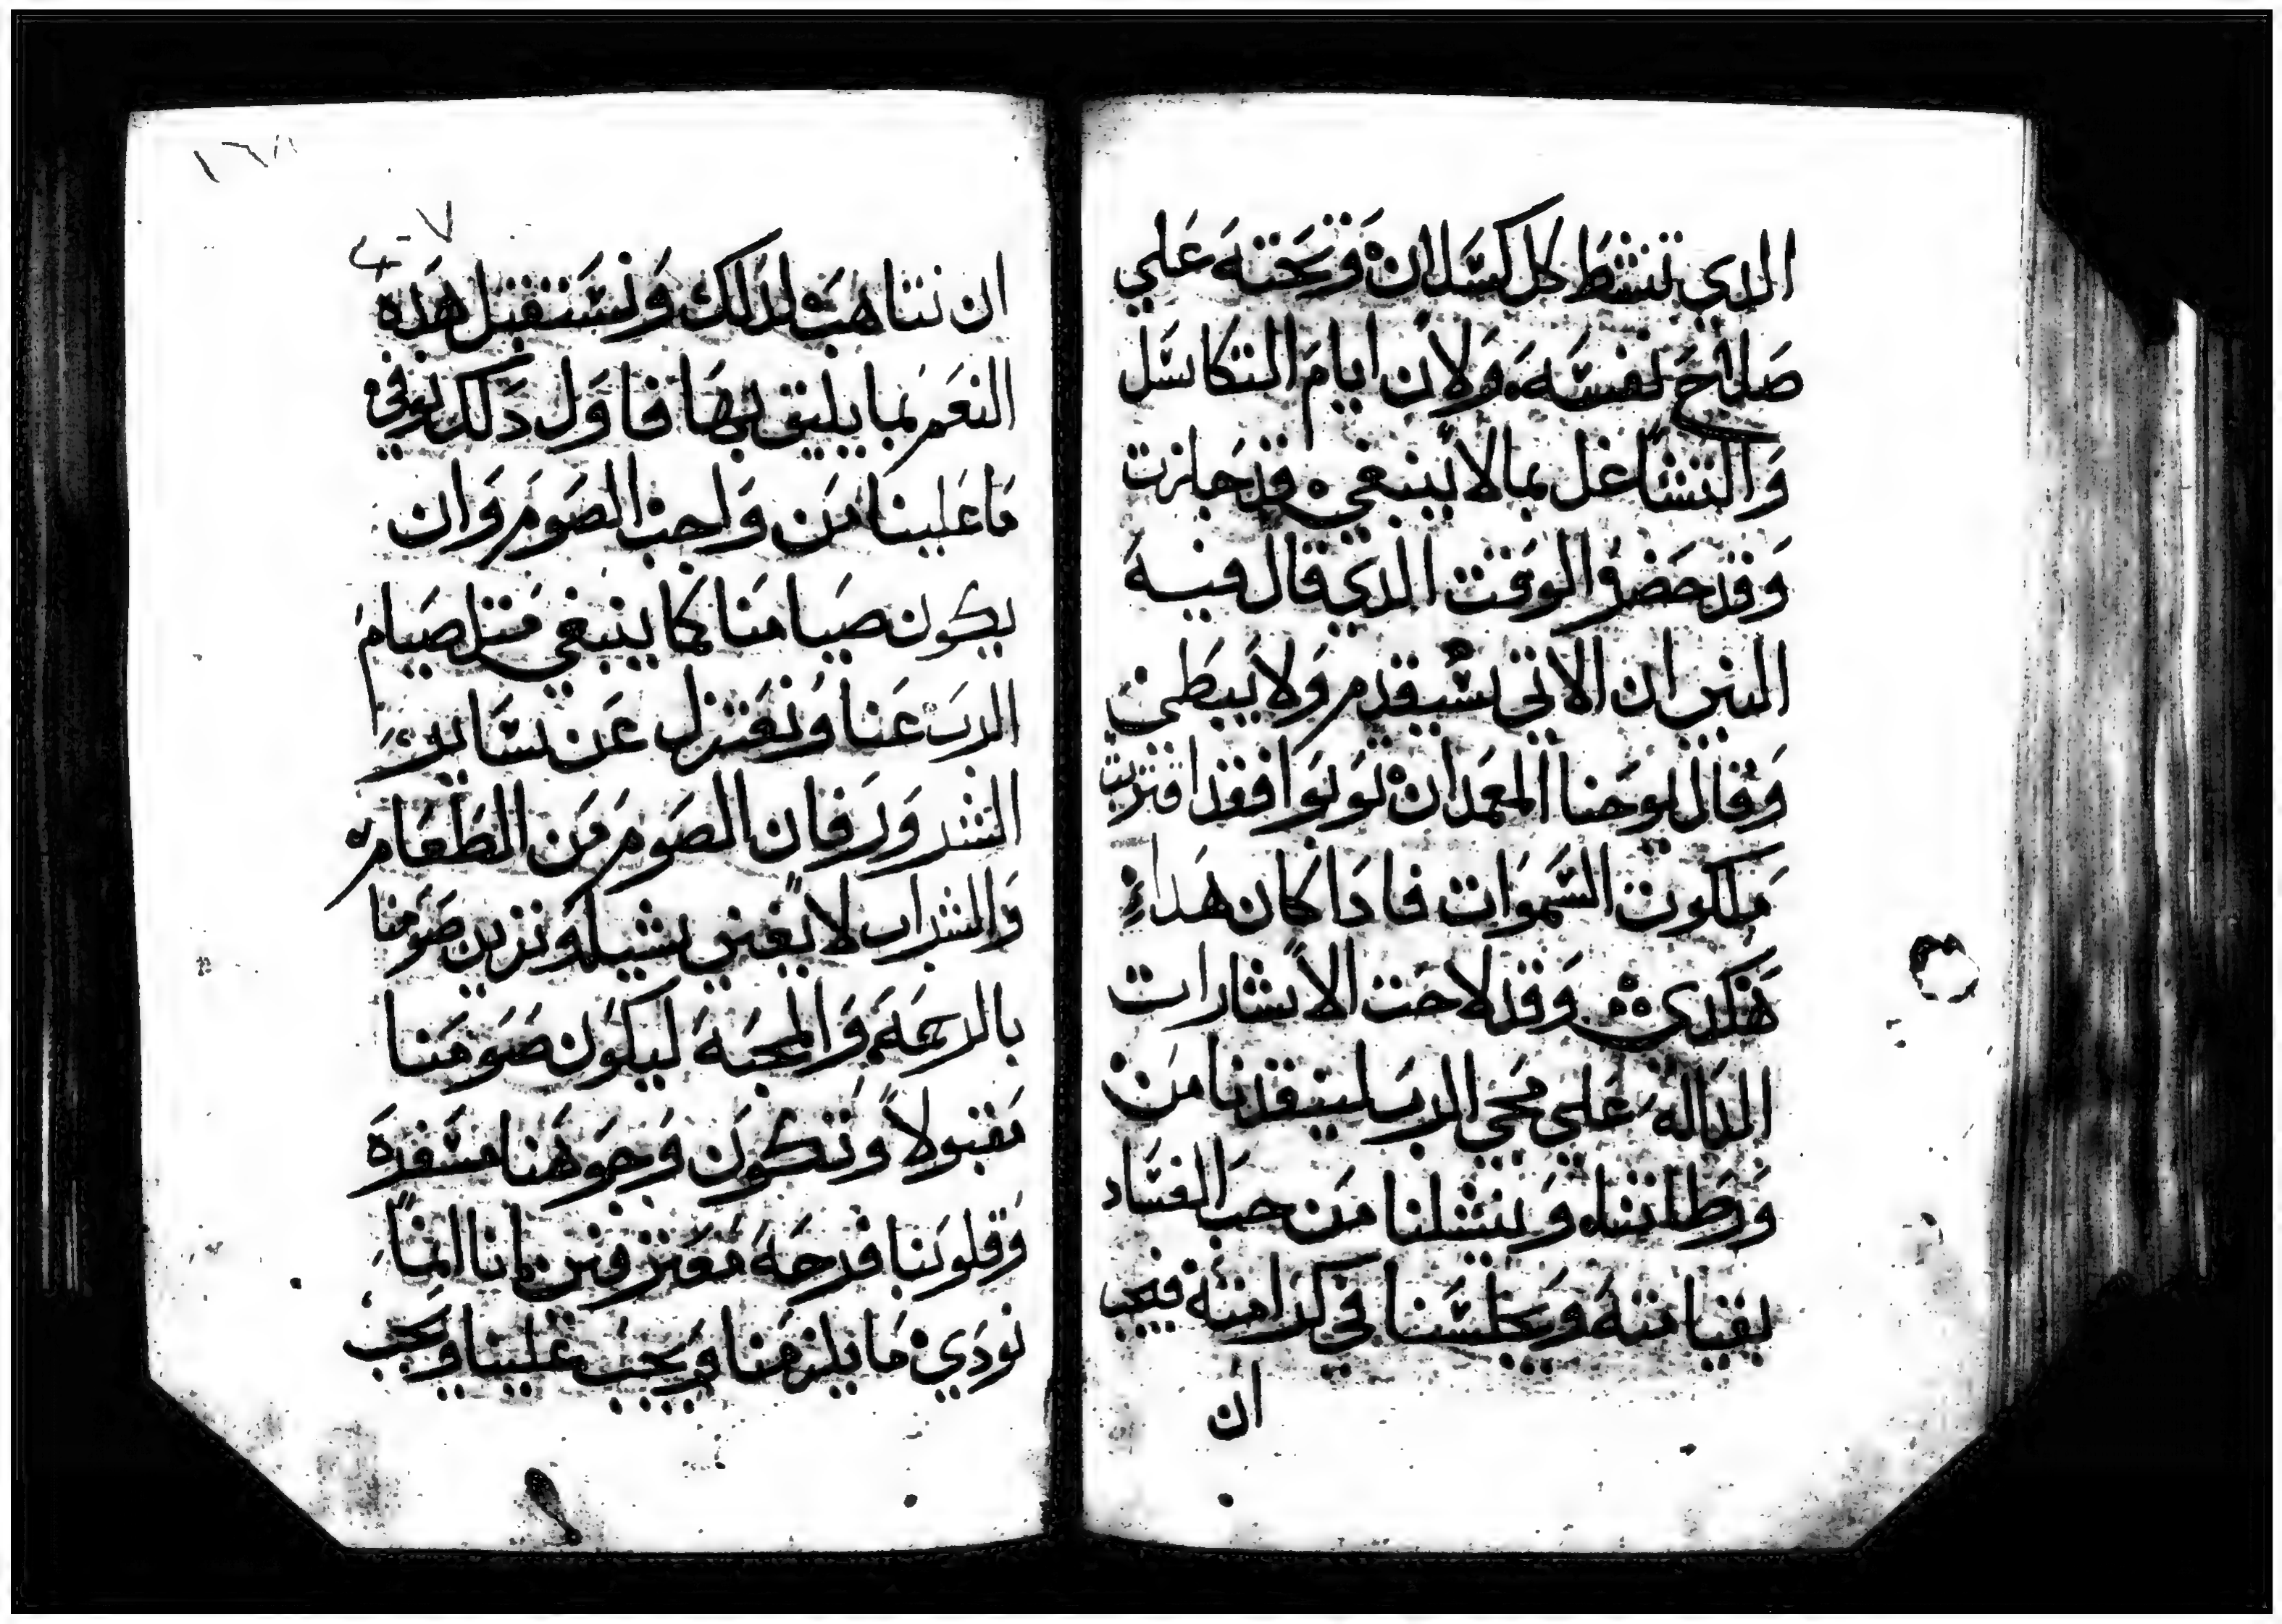 الدي تنشط كل كسلان وتحته علي
صلاح نفسه ولان ايام التكاسل
والتشاغل بما لا ينبغي قد جازت
وقد حضر الوقت الدي قال فيه
ان الاتي سيقدم ولا يبطي
وقال يوحنا المعمدان توبوا فقد اقتربت
ملكوت السموات فادا كان هدا
هكدي وقد لاحت الاشارات
الداله علي مجي الرب لينقدنا من
وينشلنا من جب الفساد
ويجلسنا في كرامته فيجب
ان
١٦٨
ان نتاهب لدلك ونستقبل هده
النعم بما يليق بها فاول دلك نوفي
ما علينا من واجب الصوم وان
يكون صيامنا كما ينبغي متل صيام
الرب عنا ونعتزل عن ساير
الشرور فان الصوم من الطعام
والشراب لا يغني بشيله نزين صومنا
بالرحمه والمحبه ليكون صومنا
مقبولا وتكون وجوهنا مسفره
وقلوبنا فرحه معترفين باننا انما
نودي ما يلزمنا ويجب علينا ويجب